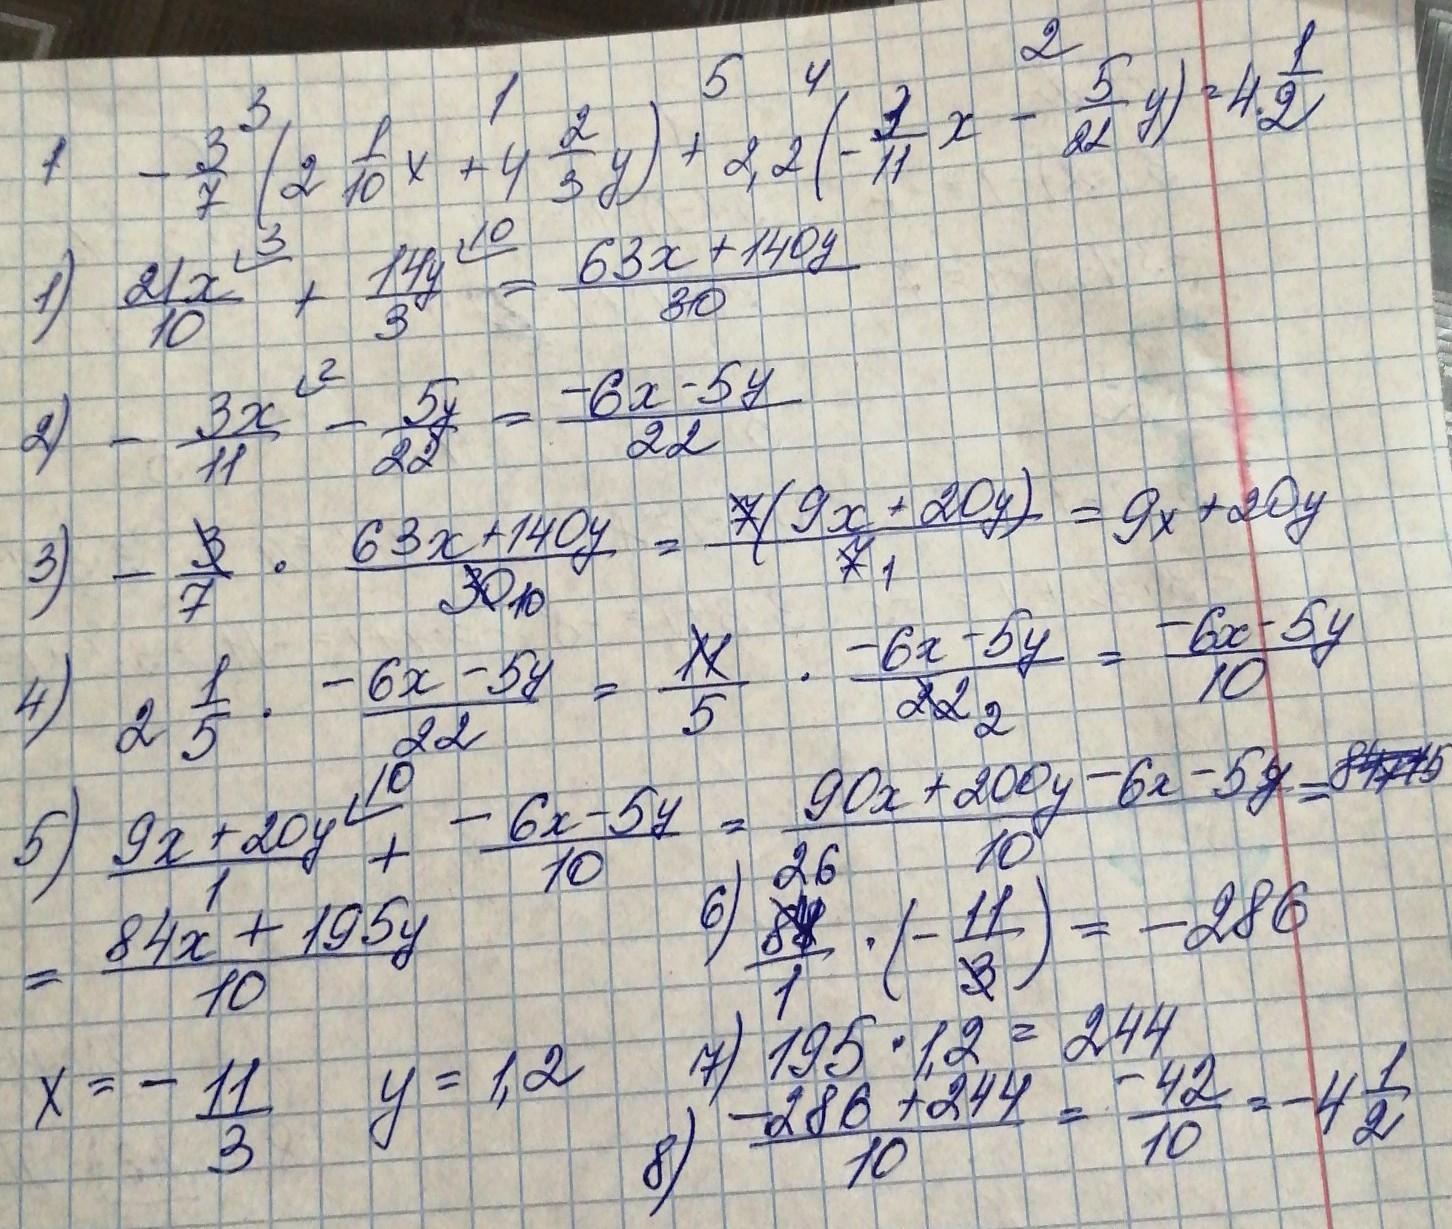 3 1 5 4 2
1 -3/7 (2 1/10 x + 4 2/3 y) + 2,2 (-3/11 x - 5/22 y) = 4 1/2
1) 21x/10 ⌊3 + 14y/3 ⌊10 = 63x + 140y/30
2) - 3x/11 ⌊2 - 5y/22 = -6x - 5y/22
3) - 3/7 · 63x + 140y/30 10 = 7(9x + 20y)/7 1 = 9x + 20y
4) 2 1/5 · -6x - 5y/22 = 11/5 · -6x - 5y/22 2 = -6x - 5y/10
5) 9x + 20y/1 ⌊10 + -6x - 5y/10 = 90x + 200y - 6x - 5y/10 =
= 84x + 195y/10
6) 84/1 26 · (- 11/3) = -286
x = - 11/3 y = 1,2
7) 195 · 1,2 = 244
8) -286 + 244/10 = -42/10 = -4 1/2